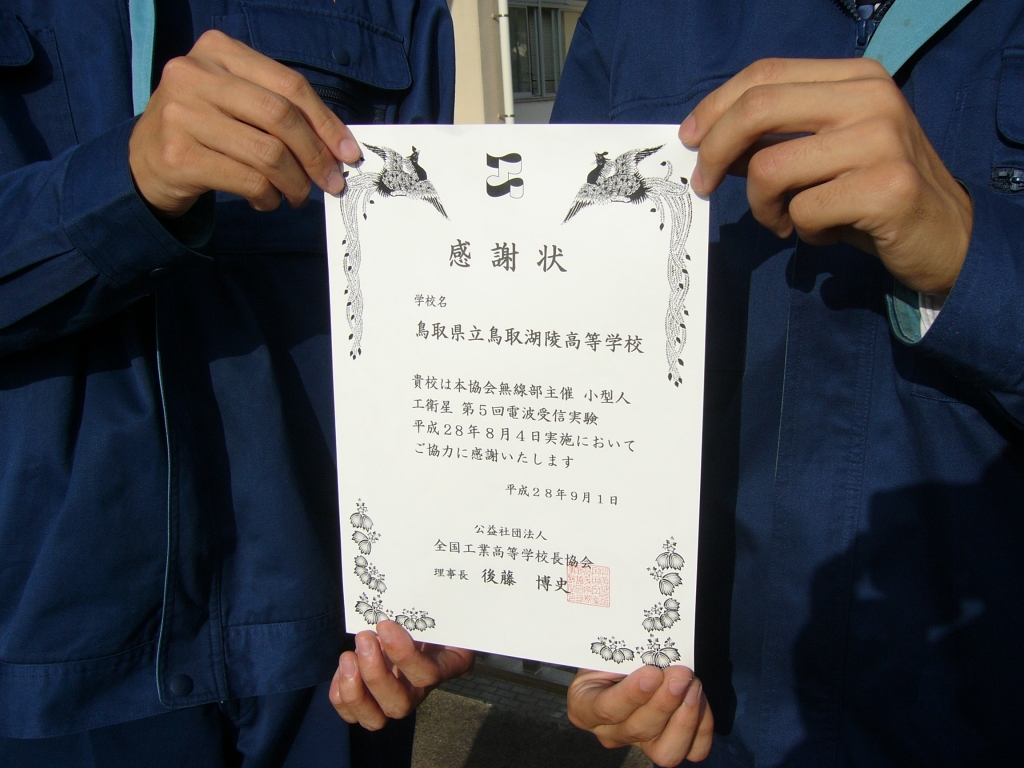 感謝状
学校名
鳥取県立鳥取湖陵高等学校
貴校は本協会無線部主催 小型人
工衛星 第５回電波受信実験
平成２８年８月４日実施において
ご協力に感謝いたします
平成２８年９月１日
公益社団法人
全国工業高等学校長協会
理事長 後藤 博史